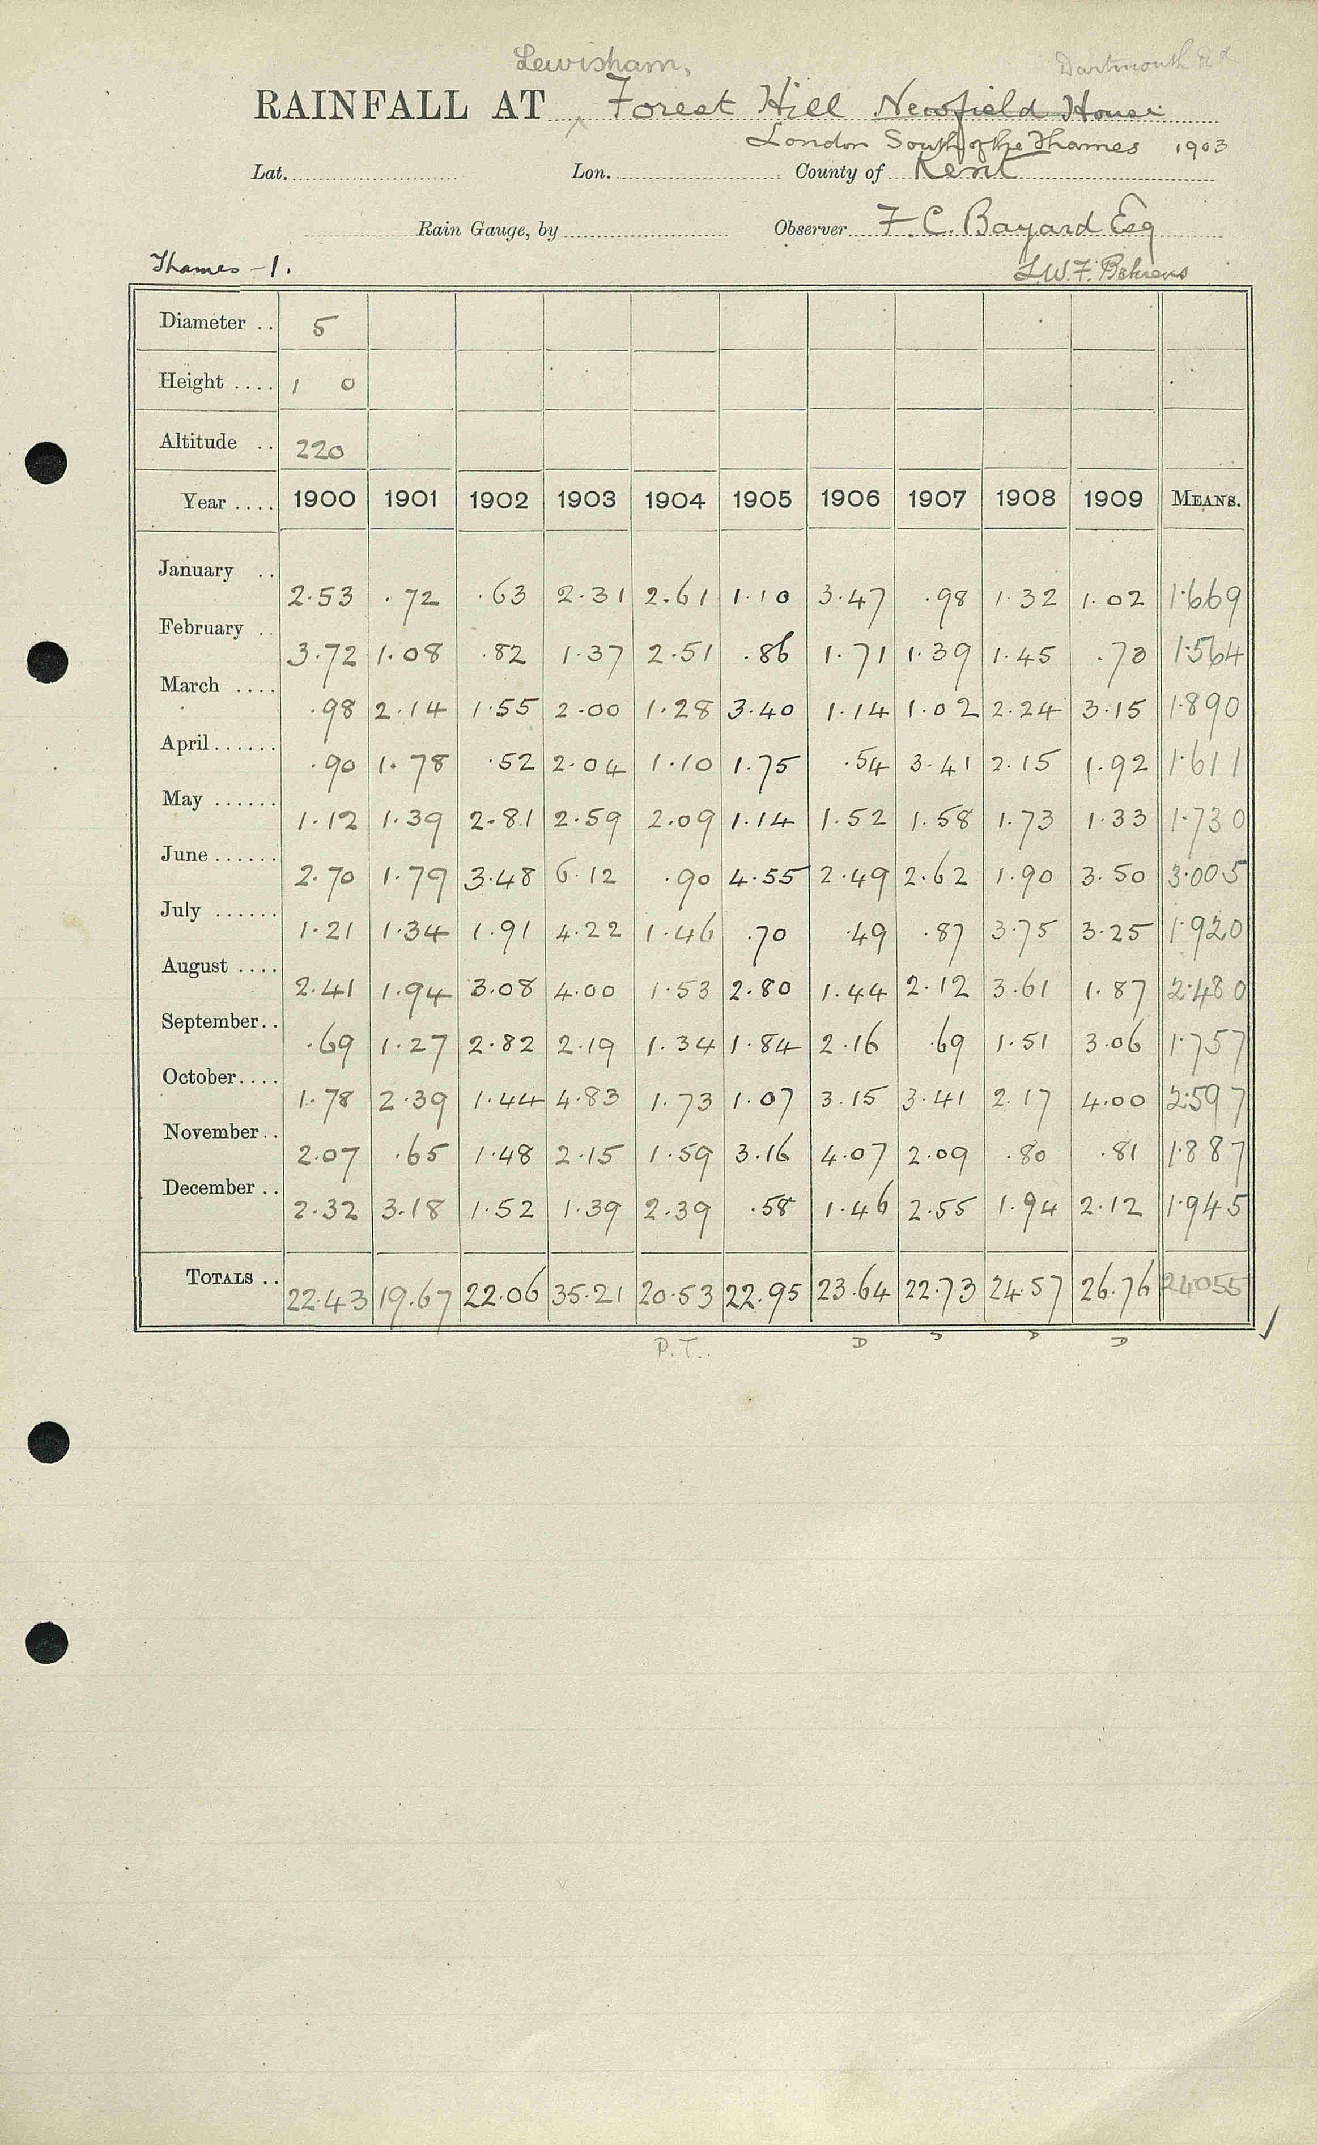 Lewisham, Dartmouth Rd
RAINFALL AT Forest Hill Newfield House
London South of the Thames 1903
Lat. Lon. County of Kent
Rain Gauge, by Observer F. C. Bayard Esq
Thames - 1. L.W.F. Behrens
Diameter .. 5
Height .... 1 0
Altitude .. 220
Year .... 1900 1901 1902 1903 1904 1905 1906 1907 1908 1909 MEANS.
January .. 2.53 .72 .63 2.31 2.61 1.10 3.47 .98 1.32 1.02 1.669
February .. 3.72 1.08 .82 1.37 2.51 .86 1.71 1.39 1.45 .73 1.564
March .... .98 2.14 1.55 2.00 1.28 3.40 1.14 1.02 2.24 3.15 1.890
April...... .90 1.78 .52 2.04 1.10 1.75 .54 3.41 2.15 1.92 1.611
May ...... 1.12 1.39 2.81 2.59 2.09 1.14 1.52 1.58 1.73 1.33 1.730
June...... 2.70 1.79 3.48 6.12 .90 4.55 2.49 2.62 1.90 3.50 3.005
July ...... 1.21 1.34 1.91 4.22 1.46 .70 .49 .87 3.75 3.25 1.920
August .... 2.41 1.94 3.08 4.00 1.53 2.80 1.44 2.12 3.61 1.87 2.480
September.. .69 1.27 2.82 2.19 1.34 1.84 2.16 .69 1.51 3.06 1.757
October.... 1.78 2.39 1.44 4.83 1.73 1.07 3.15 3.41 2.17 4.00 2.597
November.. 2.07 .65 1.48 2.15 1.59 3.16 4.07 2.09 .80 .81 1.887
December .. 2.32 3.18 1.52 1.39 2.39 .58 1.46 2.55 1.94 2.12 1.945
TOTALS .. 22.43 19.67 22.06 35.21 20.53 22.95 23.64 22.73 24.57 26.76 24.055
P.T. D D D D